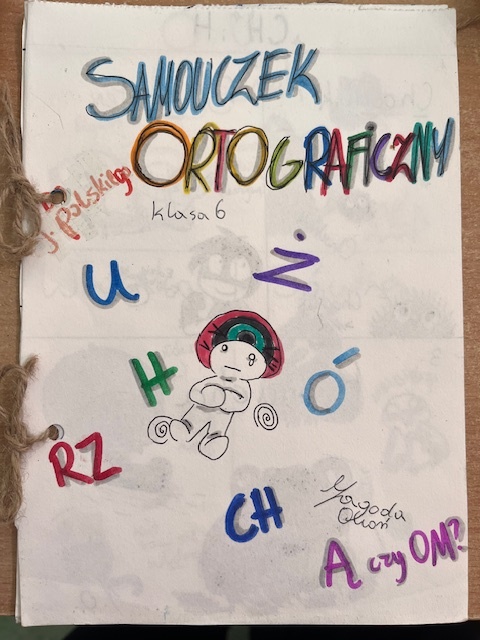 SAMOUCZEK
ORTOGRAFICZNY
j. polskiego
klasa 6
U
Ż
H
Ó
RZ
CH
Magoda
Ą czy OM?